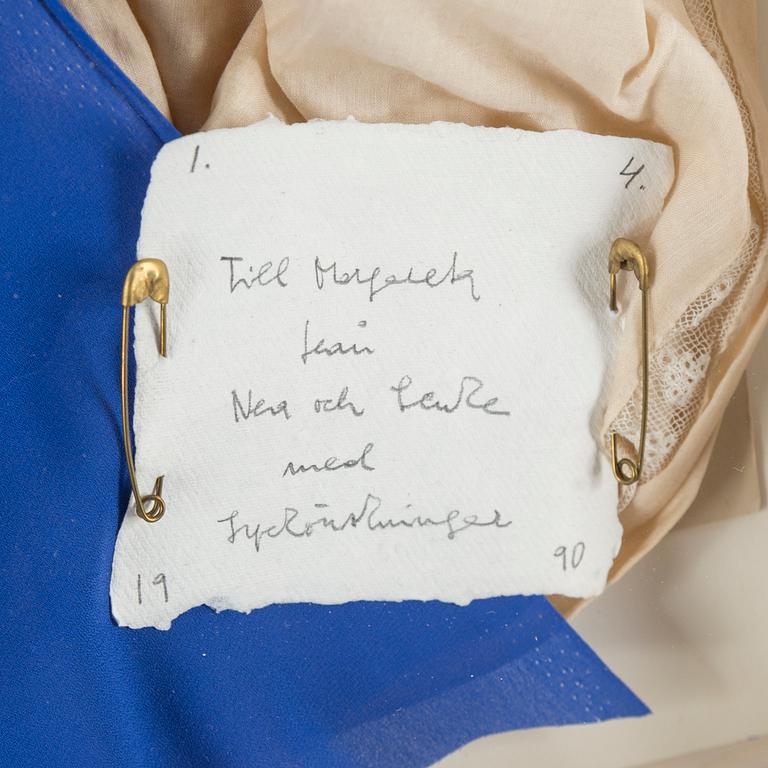 1. 4.
Till Margareta
från
Nena och
med
Lyckönskningar
19 90